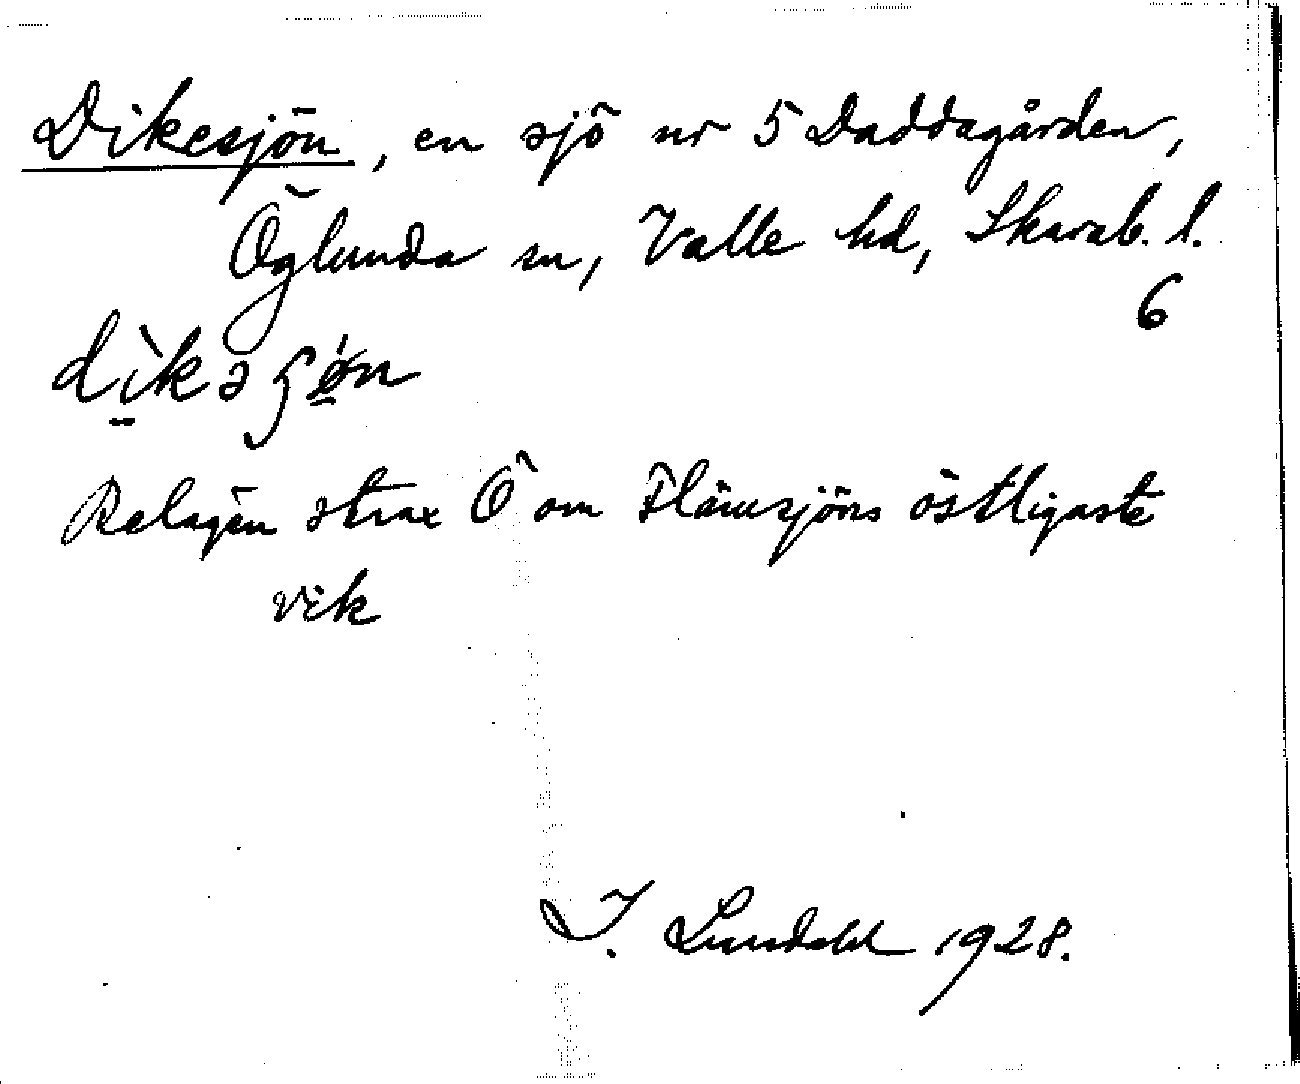 Dikesjön, en sjö nr 5 Daddagården,
Öglunda sn, Valle hd, Skarab. l.
6
dìkəʃǿn
Belägen strax Ö om Flämsjöns östligaste
vik
I. Lundahl 1928.